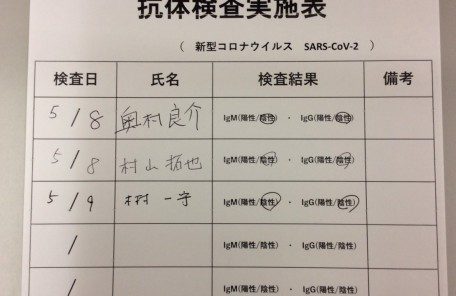 抗体検査実施表
( 新型コロナウイルス SARS-CoV-2 )
検査日 氏名 検査結果 備考
5/8 奥村良介 IgM(陽性/陰性) ・ IgG(陽性/陰性)
5/8 村山拓也 IgM(陽性/陰性) ・ IgG(陽性/陰性)
5/9 村 一守 IgM(陽性/陰性) ・ IgG(陽性/陰性)
/ IgM(陽性/陰性) ・ IgG(陽性/陰性)
/ IgM(陽性/陰性) ・ IgG(陽性/陰性)